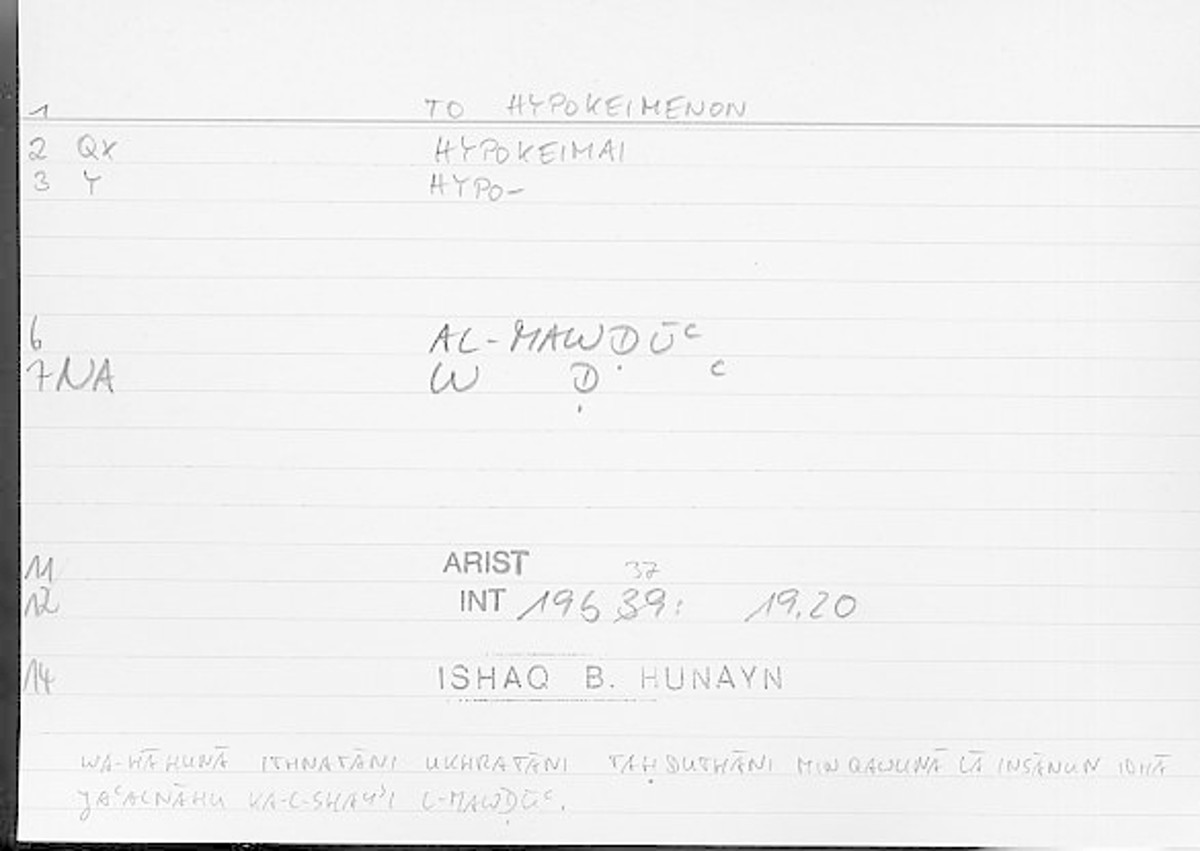 1 TO HYPOKEIMENON
2 QX HYPOKEIMAI
3 Y HYPO-
6 AL-MAWḌŪC
7 NA W Ḍ C
11 ARIST 37
12 INT 196 39: 19.20
14 ISHAQ B. HUNAYN
WA-HĀHUNĀ ITHNATĀNI UKHRATĀNI TAḤDUTHĀNI MIN QAWLINĀ LĀ INSĀNUN IDHĀ
JAʿALNĀHU KA-L-SHAYʾI L-MAWḌŪʿ.